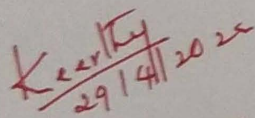 Keerthy
29/4/2025